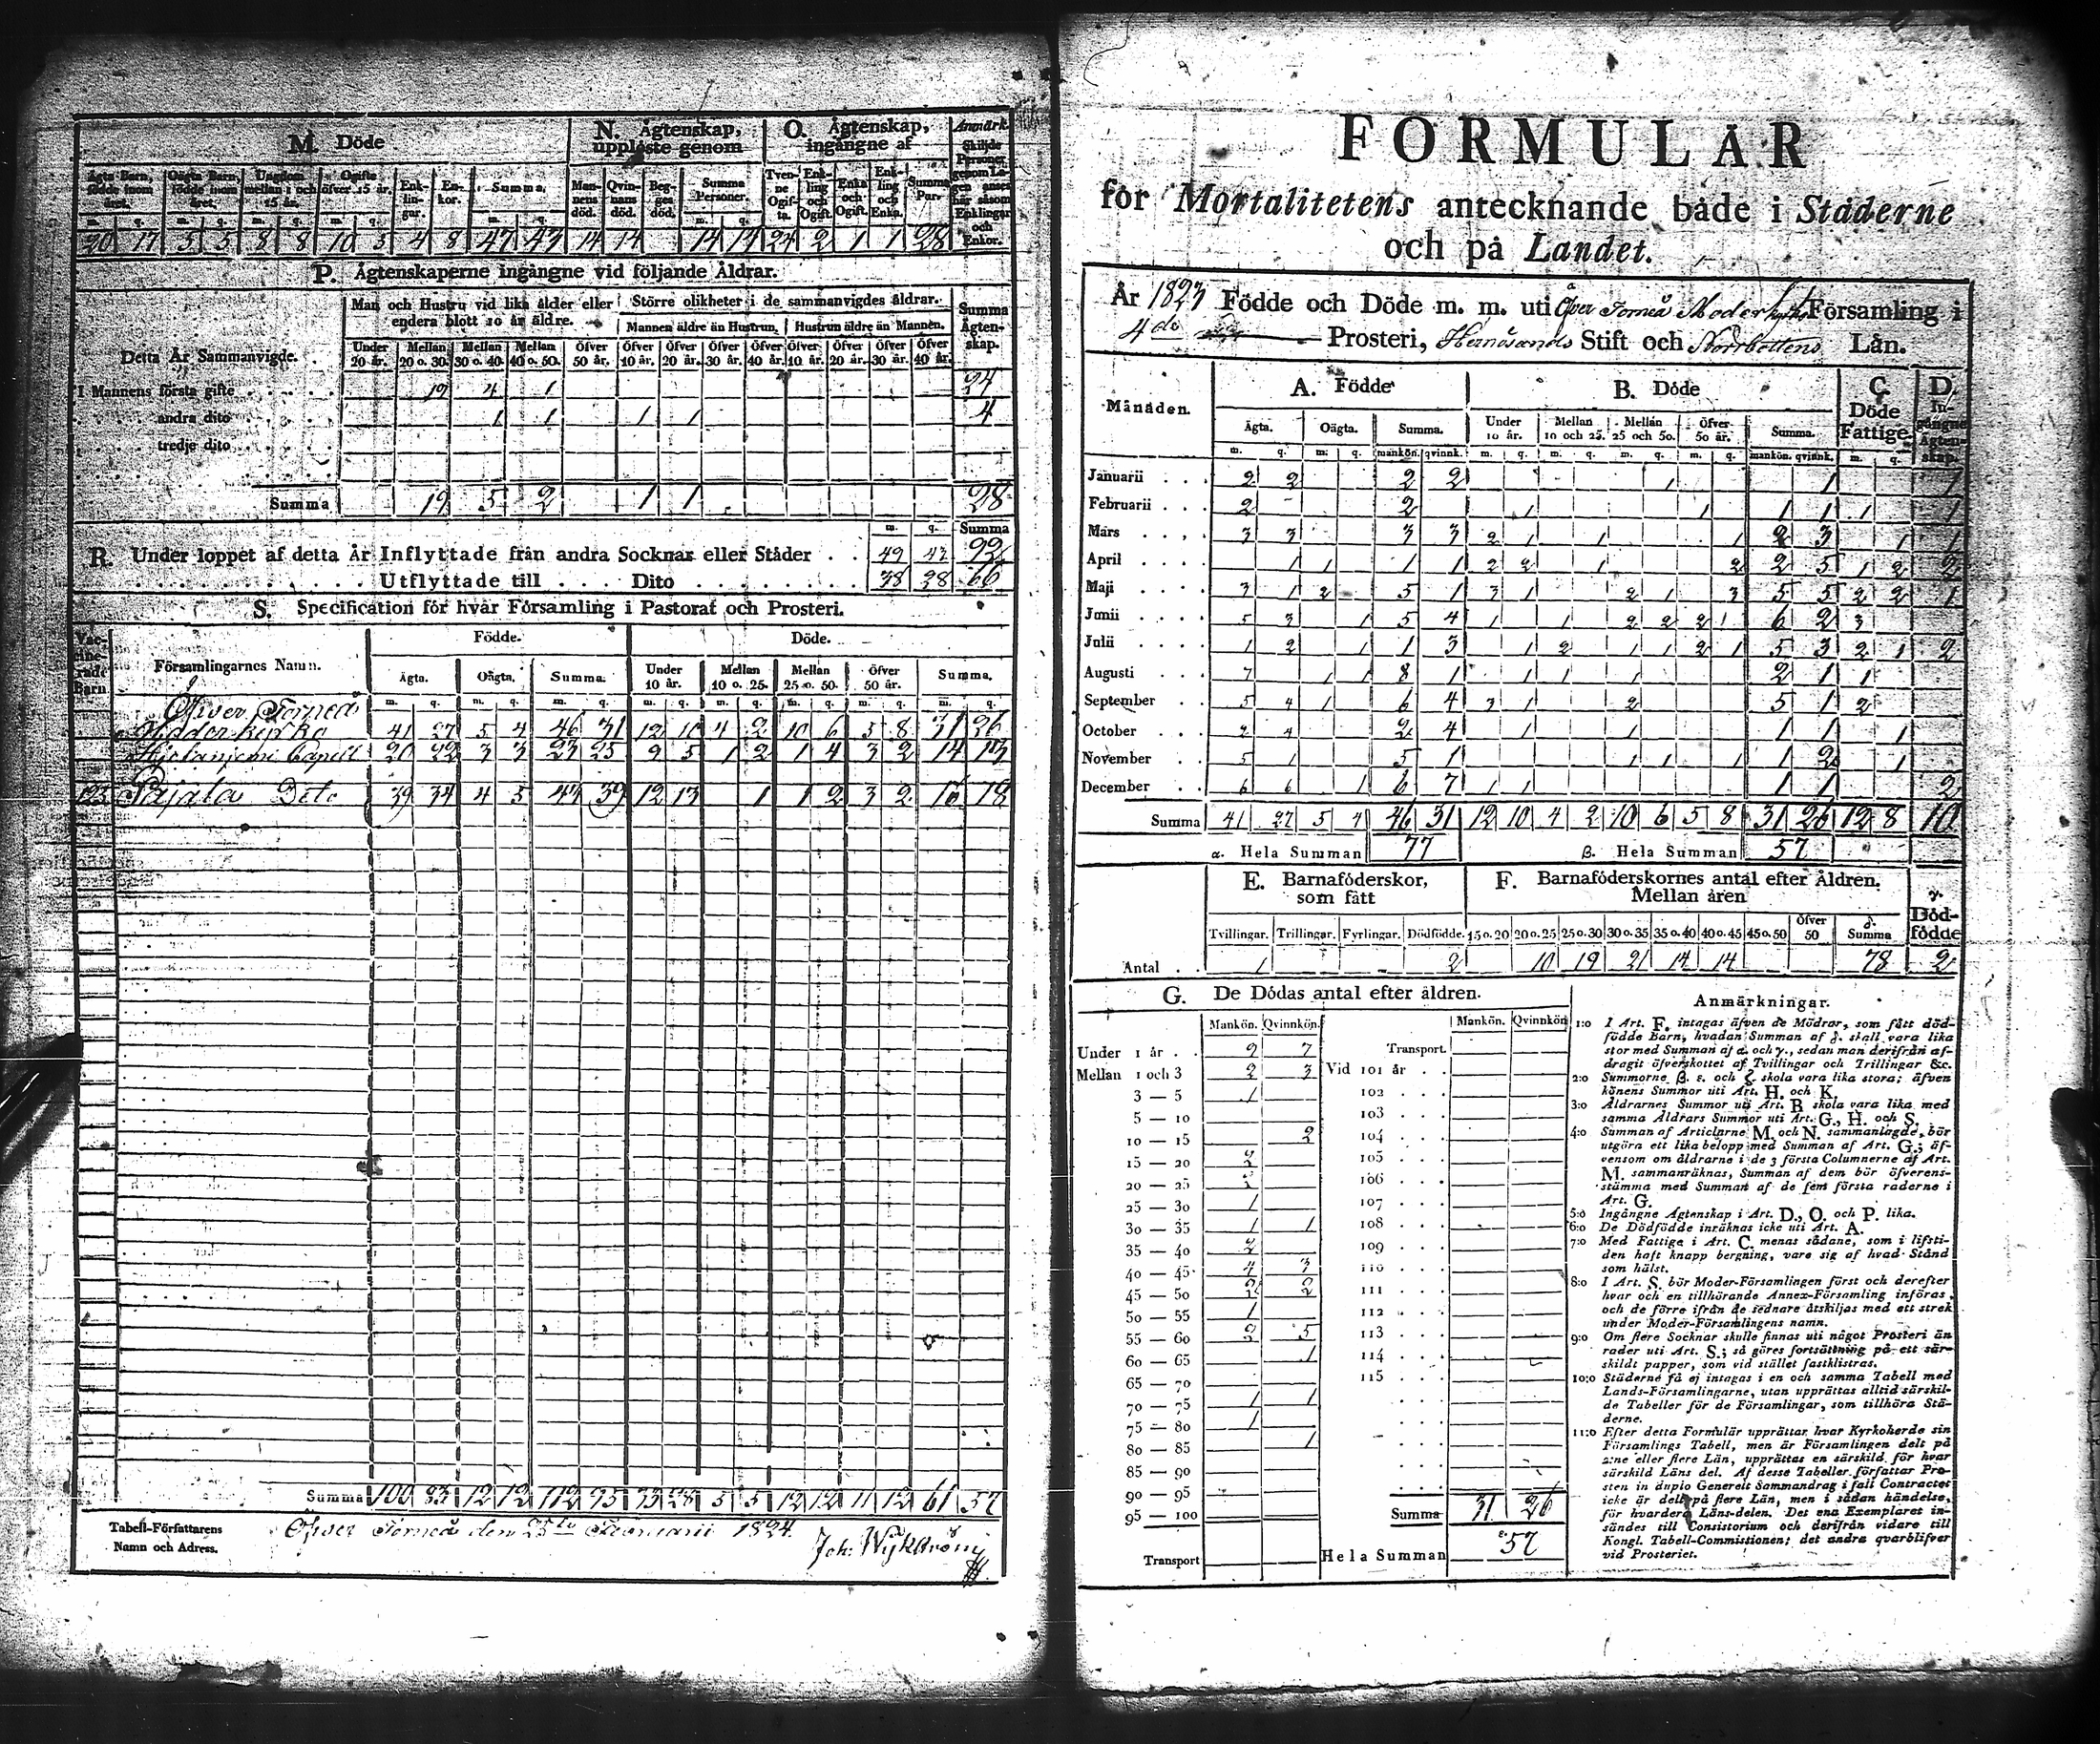 M. Döde
N. Ägtenskap, upplöste genom
O. Ägtenskap, ingångne af
Anmärk.
Skiljde Personer genom La-gen anses här såsom Enklingar och Enkor.
Ägta Barn, födde inom året. Oägta Barn, födde inom året. Ungdom mellan 1 och 15 år. Ogifte öfver 15 år. Enk-lin-gar. En-kor. Summa.
Man-nens död. Qvin-nans död. Beg-ges död. Summa Personer.
Tven-ne Ogif-ta. Enk-ling och Ogift. Enka och Ogift. Enk-ling och Enka. Summa Par.
m. q. m. q. m. q. m. q. m. q. m. q.
20 17 5 5 8 8 10 5 4 8 47 43 14 14 14 14 24 2 1 1 28
P. Ägtenskaperne ingångne vid följande Åldrar.
Detta År Sammanvigde.
Man och Hustru vid lika ålder eller endera blott 10 år äldre.
Större olikheter i de sammanvigdes åldrar.
Mannen äldre än Hustrun. Hustrun äldre än Mannen.
Summa Ägten-skap.
Under 20 år. Mellan 20 o. 30. Mellan 30 o. 40. Mellan 40 o. 50. Öfver 50 år. Öfver 10 år. Öfver 20 år. Öfver 30 år. Öfver 40 år. Öfver 10 år. Öfver 20 år. Öfver 30 år. Öfver 40 år.
I Mannens första gifte 19 4 1 24
andra dito 1 1 1 1 4
tredje dito
Summa 19 5 2 1 1 28
m. q. Summa
R. Under loppet af detta År Inflyttade från andra Socknar eller Städer 49 43 92
Utflyttade till Dito 38 28 66
S. Specification för hvar Församling i Pastorat och Prosteri.
Vac-cine-rade Barn.
Församlingarnes Namn.
Födde. Döde.
Ägta. Oägta. Summa. Under 10 år. Mellan 10 o. 25. Mellan 25 o. 50. Öfver 50 år. Summa.
m. q. m. q. m. q. m. q. m. q. m. q. m. q. m. q.
Öfver Torneå
Moderkyrka 41 27 5 4 46 31 12 10 4 2 10 6 5 8 31 26
Hjetanjemi Capell 20 22 3 3 23 25 9 5 1 2 1 4 3 2 14 13
123 Pajala Dito 39 34 4 5 43 39 12 13 1 1 2 3 2 16 18
Summa 100 83 12 12 112 95 33 28 5 5 12 12 11 12 61 57
Tabell-Författarens Namn och Adress.
Öfver Torneå den 25 Februarii 1824.
Joh: Wykström
FORMULÄR
för Mortalitetens antecknande både i Städerne
och på Landet.
År 1823 Födde och Döde m. m. uti Öfver Torneå Moderkyrko Församling i
4de Prosteri, Hernösands Stift och Norrbottens Län.
Månaden. A. Födde B. Döde C. Döde Fattige. D. In-gångne Ägten-skap.
Ägta. Oägta. Summa. Under 10 år. Mellan 10 och 25. Mellan 25 och 50. Öfver 50 år. Summa.
m. q. m. q. mankön. qvinnk. m. q. m. q. m. q. m. q. mankön. qvinnk. m. q.
Januarii 2 2 2 2 1 1 1
Februarii 2 2 1 1 1 1 1 1
Mars 3 3 3 3 2 1 1 1 2 3 1 1
April 1 1 1 1 2 2 1 2 2 5 1 2 2
Maji 3 1 2 5 1 3 1 2 1 3 5 5 2 2 1
Junii 5 3 1 5 4 1 1 2 2 2 6 2 3
Julii 1 2 1 1 3 1 2 1 1 2 1 5 3 2 1 2
Augusti 7 1 1 8 1 1 1 1 2 1 1
September 5 4 1 6 4 3 1 2 5 1 2
October 2 4 2 4 1 1 1 1 1
November 5 1 5 1 1 1 1 1 2 1
December 6 6 1 6 7 1 1 1 1 2
Summa 41 27 5 4 46 31 12 10 4 2 10 6 5 8 31 26 12 8 10
α. Hela Summan 77 β. Hela Summan 57
E. Barnaföderskor, som fått
F. Barnaföderskornes antal efter Åldren. Mellan åren
γ. Död-födde
Tvillingar. Trillingar. Fyrlingar. Dödfödde. 15 o. 20 20 o. 25 25 o. 30 30 o. 35 35 o. 40 40 o. 45 45 o. 50 Öfver 50 δ. Summa
Antal 1 2 10 19 21 14 14 78 2
G. De Dödas antal efter åldren.
Mankön. Qvinnkön. Mankön. Qvinnkön
Under 1 år 9 7 Transport.
Mellan 1 och 3 2 3 Vid 101 år
3 — 5 1 102
5 — 10 103
10 — 15 2 104
15 — 20 2 105
20 — 25 2 106
25 — 30 1 107
30 — 35 1 1 108
35 — 40 2 109
40 — 45 4 3 110
45 — 50 2 2 111
50 — 55 1 112
55 — 60 2 5 113
60 — 65 1 114
65 — 70 115
70 — 75 1 1
75 — 80 1
80 — 85 1
85 — 90
90 — 95
95 — 100 Summa 31 26
Transport Hela Summan ε. 57
Anmärkningar.
1:o I Art. F. intagas äfven de Mödrar, som fått död-
födde Barn, hvadan Summan af δ. skall vara lika
stor med Summan af α. och γ., sedan man derifrån af-
dragit öfverskottet af Tvillingar och Trillingar &c.
2:o Summorne β. ε. och ζ. skola vara lika stora; äfven
könens Summor uti Art. H. och K.
3:o Åldrarnes Summor uti Art. B skola vara lika med
samma Åldrars Summor uti Art. G., H. och S.
4:o Summan af Articlarne M. och N. sammanlagde, bör
utgöra ett lika belopp med Summan af Art. G.; äf-
vensom om åldrarne i de 3 första Columnerne af Art.
M. sammanräknas, Summan af dem bör öfverens-
stämma med Summan af de fem första raderne i
Art. G.
5:o Ingångne Ägtenskap i Art. D., O. och P. lika.
6:o De Dödfödde inräknas icke uti Art. A.
7:o Med Fattige i Art. C. menas sådane, som i lifsti-
den haft knapp bergning, vare sig af hvad Stånd
som hälst.
8:o I Art. S. bör Moder-Församlingen först och derefter
hvar och en tillhörande Annex-Församling införas,
och de förre ifrån de sednare åtskiljas med ett strek
under Moder-Församlingens namn.
9:o Om flere Socknar skulle finnas uti något Prosteri än
rader uti Art. S.; så göres fortsättning på ett sär-
skildt papper, som vid stället fastklistras.
10:o Städerne få ej intagas i en och samma Tabell med
Lands-Församlingarne, utan upprättas alltid särskil-
de Tabeller för de Församlingar, som tillhöra Stä-
derne.
11:o Efter detta Formulär upprättar hvar Kyrkoherde sin
Församlings Tabell, men är Församlingen delt på
2:ne eller flere Län, upprättas en särskild för hvar
särskild Läns del. Af desse Tabeller författar Pro-
sten in duplo Generelt Sammandrag i fall Contractet
icke är delt på flere Län, men i sådan händelse,
för hvardera Läns-delen. Det ena Exemplaret in-
sändes till Consistorium och derifrån vidare till
Kongl. Tabell-Commissionen; det andra qvarblifver
vid Prosteriet.